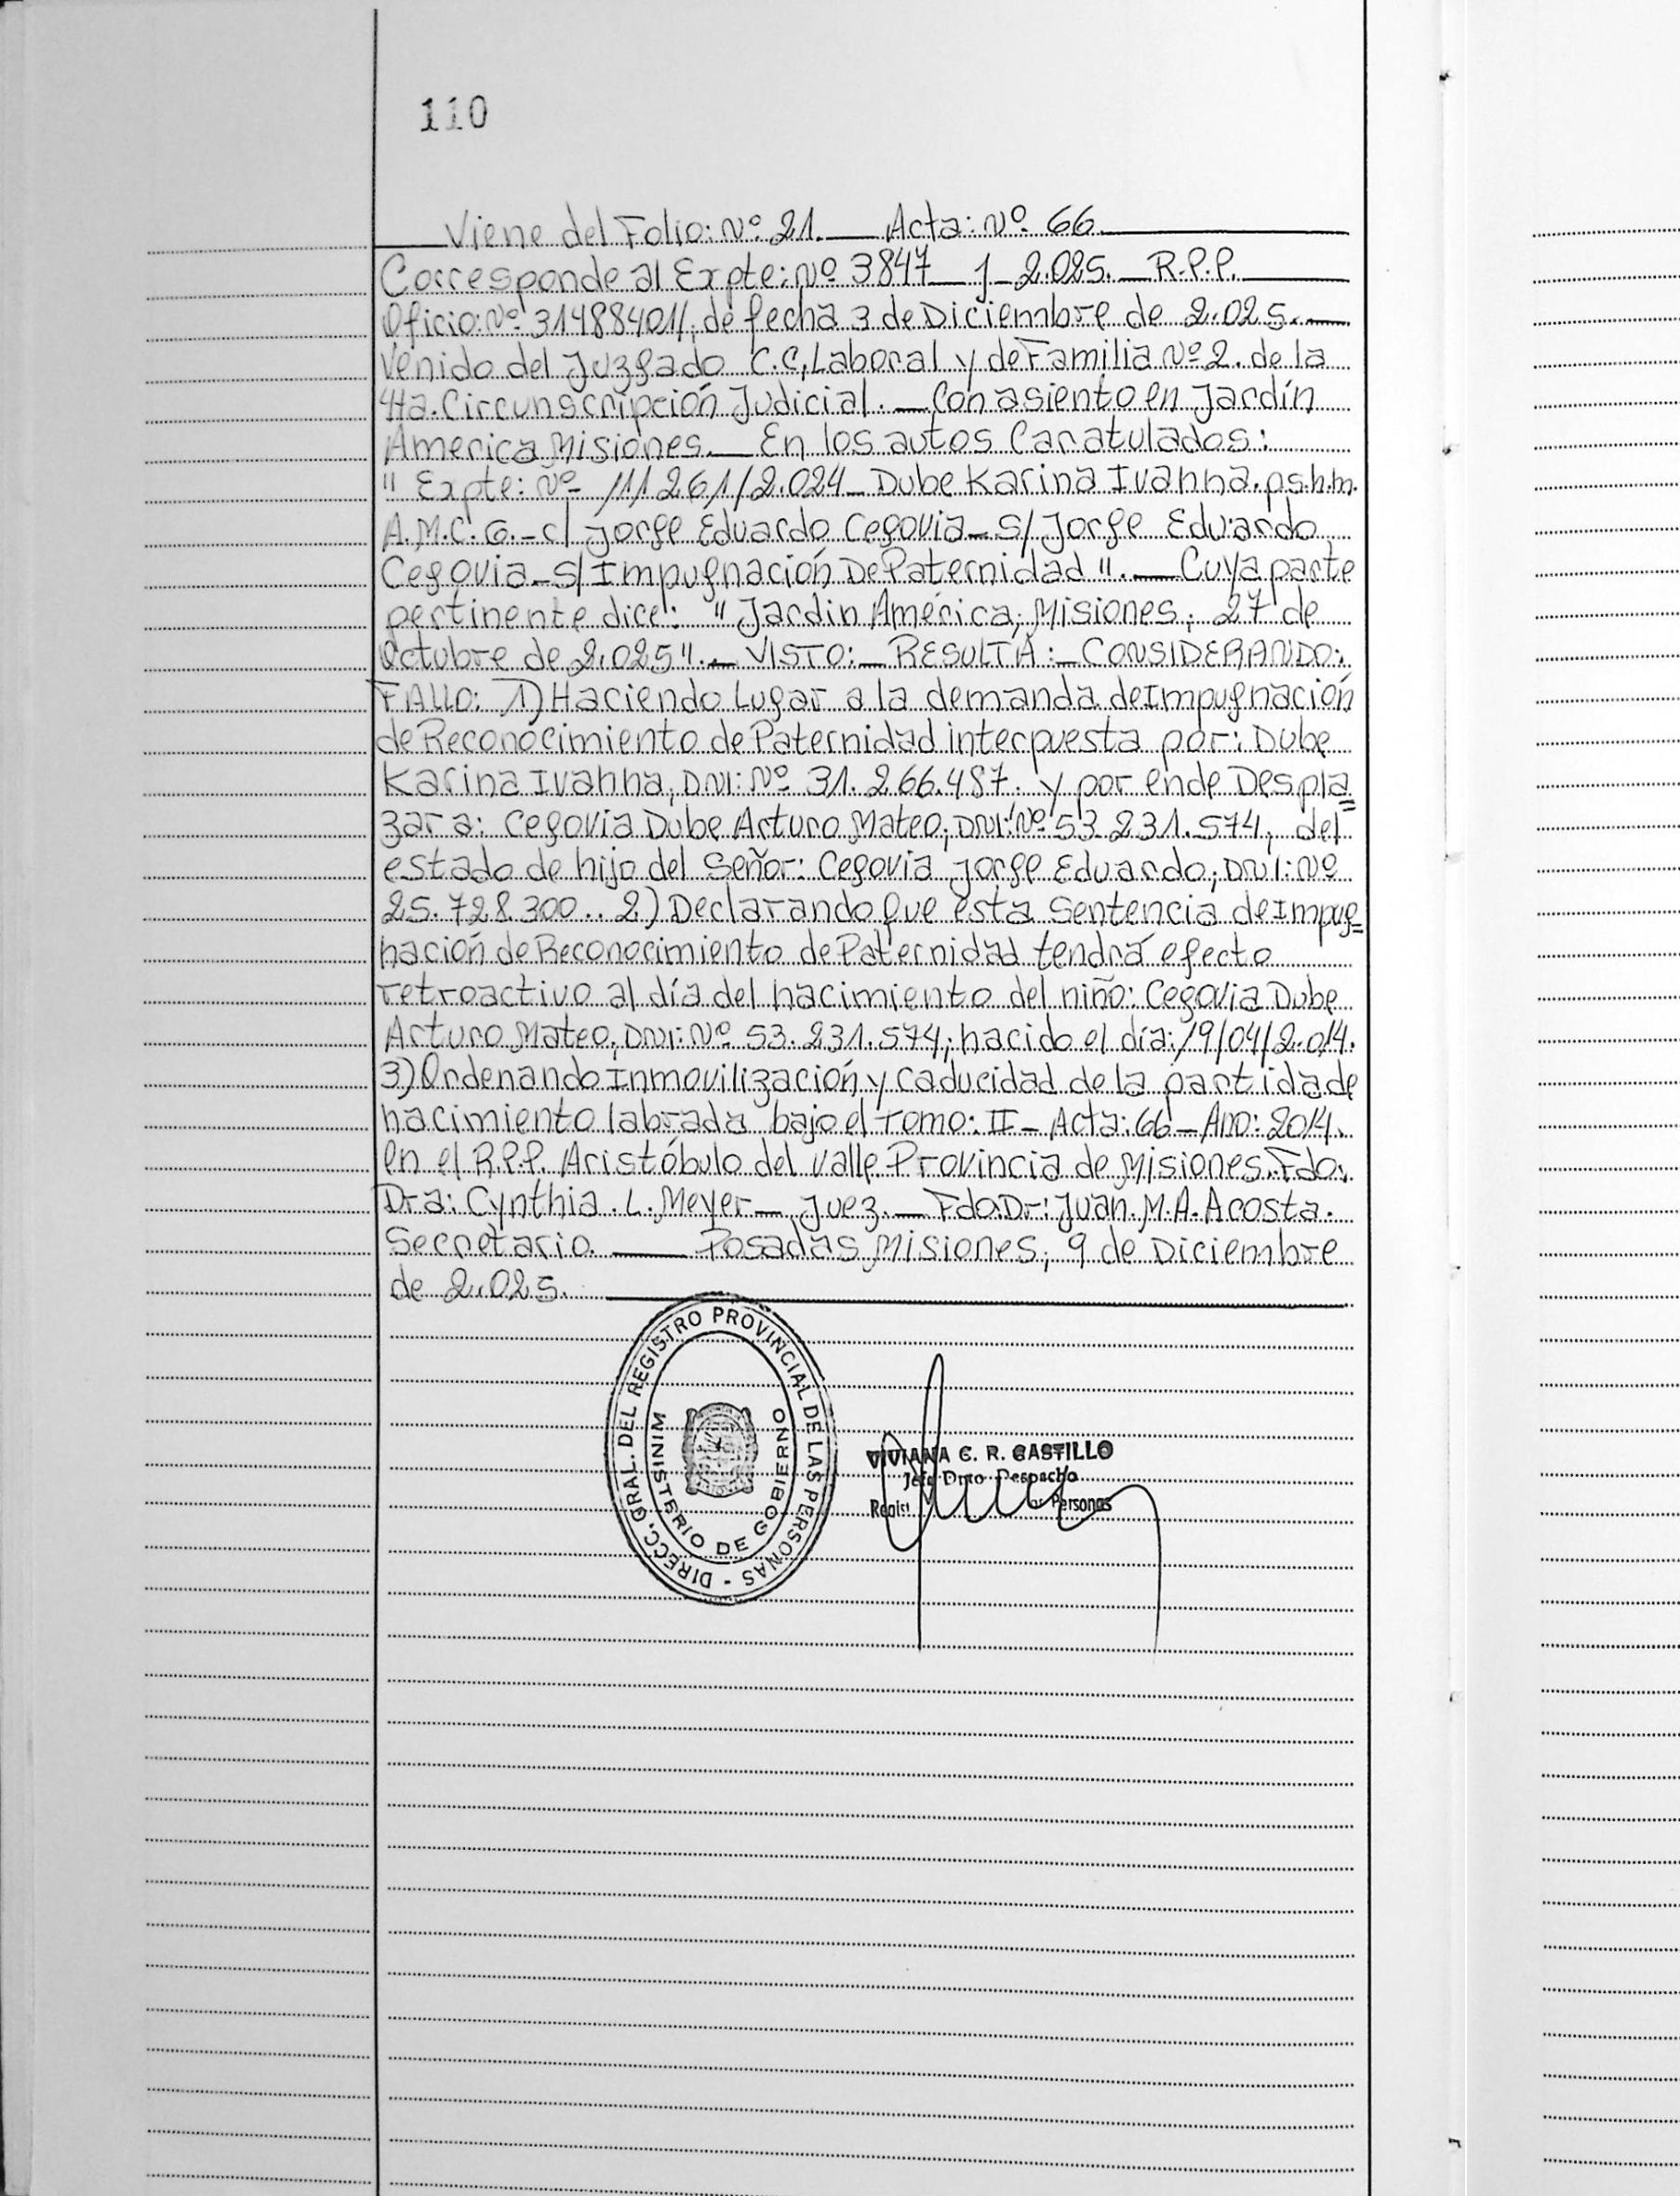 110
Viene del Folio: Nº 21. Acta: Nº 66
Corresponde al Expte: Nº 3847 J 2.025. R.P.P.
Oficio: Nº 31488401/, de fecha 3 de Diciembre de 2.025.
Venido del Juzgado C.C, Laboral y de Familia Nº 2. de la
4ta. Circunscripción Judicial. Con asiento en Jardín
America Misiones En los autos Caratulados:
" Expte: Nº 111261/2.024 Dube Karina Ivanna. p.s.h.m.
A.M.C. G. - c/ Jorge Eduardo Cegovia - S/ Jorge Eduardo
Cegovia - S/ Impugnación De Paternidad ". Cuya parte
pertinente dice: " Jardin América, Misiones, 27 de
Octubre de 2.025". - VISTO: - RESULTA: - CONSIDERANDO:
FALLO: 1) Haciendo Lugar a la demanda de Impugnación
de Reconocimiento de Paternidad interpuesta por: Dube
Karina Ivanna, DNI: Nº 31.266.487. y por ende Despla=
zar a: Cegovia Dube Arturo Mateo, DNI: Nº 53 231.574, del
estado de hijo del Señor: Cegovia Jorge Eduardo, DNI: Nº
25.728.300.. 2) Declarando que esta Sentencia de Impug=
nación de Reconocimiento de Paternidad tendrá efecto
retroactivo al día del nacimiento del niño: Cegovia Dube
Arturo Mateo, DNI: Nº 53.231.574, nacido el día: 19/04/2.014.
3) Ordenando Inmovilización y Caducidad de la partida de
nacimiento labrada bajo el Tomo: II - Acta: 66 - Año: 2014.
en el R.P.P. Aristóbulo del Valle Provincia de Misiones. Fdo:
Dra: Cynthia. L. Meyer - Juez. - Fdo. Dr: Juan. M. A. Acosta.
Secretario. Posadas Misiones, 9 de Diciembre
de 2.025.
DIRECC. GRAL. DEL REGISTRO PROVINCIAL DE LAS PERSONAS -
MINISTERIO DE GOBIERNO
VIVIANA C. R. CASTILLO
Jefe Dpto Despacho
Personas